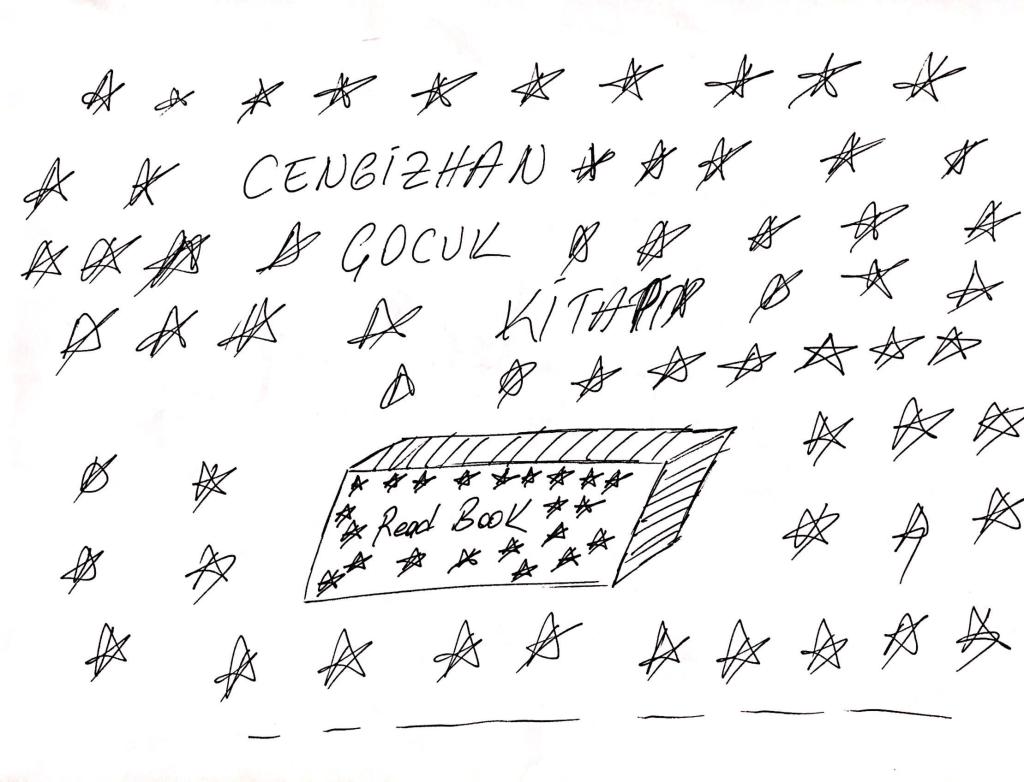 CENGİZHAN
GOCUK
KİTAPIM
Read BOOK